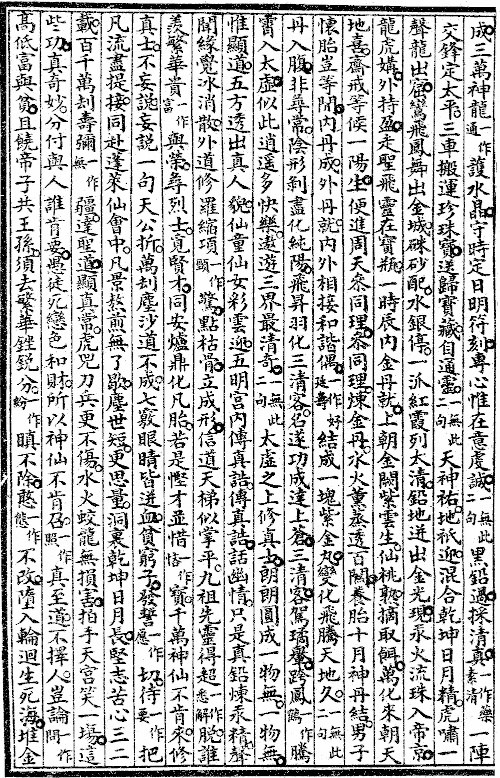 成三萬神龍一作通護水晶守時定日明符刻專心惟在意虔誠一無此二句黑鉛過採清真一作藥素清一陣
交鋒定太平三車搬運珍珠寶送歸寶藏自通靈一無此二句天神祐地祇迎混合乾坤日月精虎嘯一
聲龍出窟鸞飛鳳舞出金城硃砂配水銀停一派紅霞列太清鉛地迸出金光現汞火流珠入帝京
龍虎媾外持盈走聖飛靈在寶瓶一時辰內金丹就上朝金闕紫雲生仙桃熟摘取餌萬化來朝天
地喜齋戒等候一陽生便進周天參同理參同理煉金丹水火薰蒸透百關養胎十月神丹結男子
懷胎豈等閒內丹成外丹就內外相接和諧偶一作好延壽結成一塊紫金丸變化飛騰天地久一無此二句
丹入腹非尋常陰形剝盡化純陽飛昇羽化三清客名遂功成達上蒼三清客駕瓊轝跨鳳一作鶴騰
霄入太虛似此逍遥多快樂遨遊三界最清奇一無此二句太虛之上修真士朗朗圓成一物無一物無
惟顯道五方透出真人貌仙童仙女彩雲迎五明宮內傳真誥傳真誥話幽情只是真鉛煉汞精聲
聞緣覺冰消散外道修羅縮項一作頸驚點枯骨立成形信道天梯似掌平九祖先靈得超一作悉解脫誰
羨繁華貴一作富與榮尋烈士覓賢才同安爐鼎化凡胎若是慳才並惜一作恡寳千萬神仙不肯來修
真士不妄說妄說一句天公折萬刼塵沙道不成七竅眼睛皆迸血貧窮子發誓一作應切待一作要把
凡流盡提接同赴蓬萊仙會中凡景熬煎無了歇塵世短更思量洞裏乾坤日月長堅志苦心三二
載百千萬刼壽彌一作無疆達聖道顯真常虎兕刀兵更不傷水火蛟龍無損害拍手天宮笑一場這
些功真奇妙分付與人誰肯要愚徒死戀色和財所以神仙不肯召一作照真至道不擇人豈論一作問
高低富與貧且饒帝子共王孫須去繁華銼銳分一作紛瞋不除憨一作態不改墮入輪迴生死海堆金